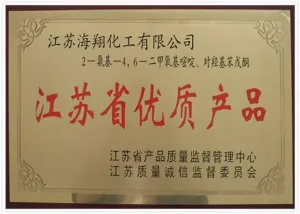 江苏海翔化工有限公司
2—氨基—4,6—二甲氧基嘧啶、对羟基苯戊酮
江苏省优质产品
江苏省产品质量监督管理中心
江苏质量诚信监督委员会